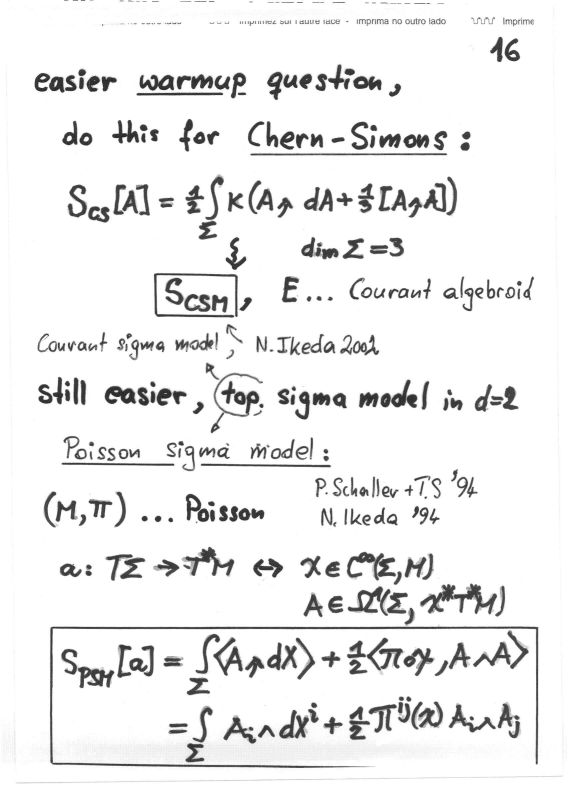 Imprimez sur l'autre face - Imprima no outro lado Imprime
16
easier warmup question,
do this for Chern-Simons:
S_CS[A] = ½ ∫_Σ K(A ∧, dA + ⅓[A ∧, A])
dim Σ = 3
S_CSM, E ... Courant algebroid
Courant sigma model, N. Ikeda 2002
still easier, top. sigma model in d=2
Poisson sigma model:
P. Schaller + T.S '94
(M, π) ... Poisson
N. Ikeda '94
a: TΣ → T*M ↔ X ∈ C^∞(Σ, M)
A ∈ Ω¹(Σ, X*T*M)
S_PSM[a] = ∫_Σ ⟨A ∧, dX⟩ + ½⟨π∘X, A∧A⟩
= ∫_Σ A_i ∧ dX^i + ½ π^ij(X) A_i ∧ A_j